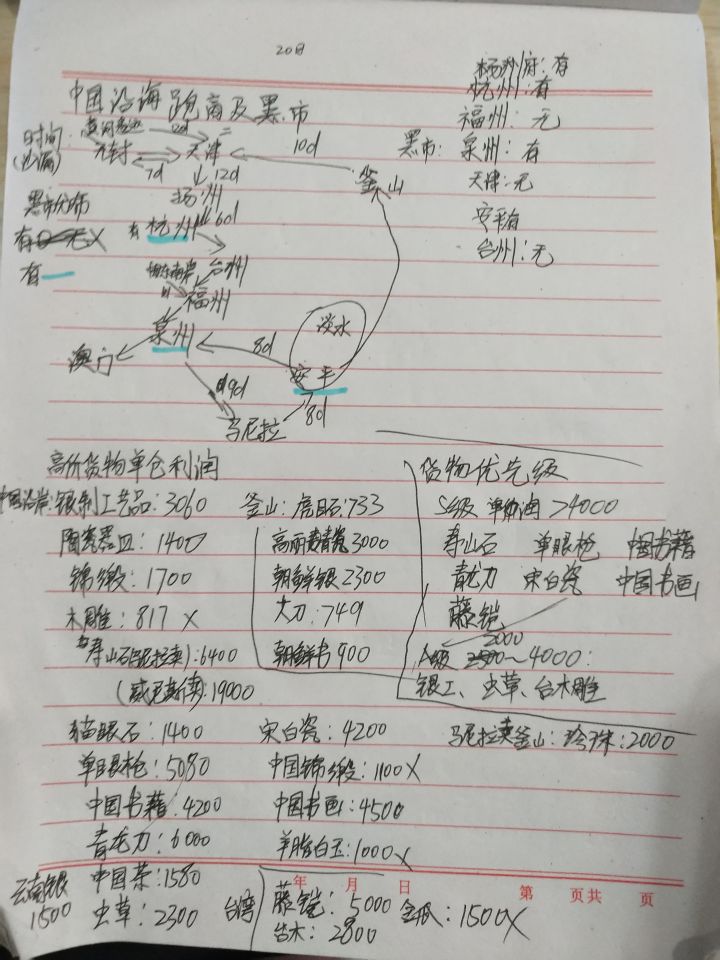 20日
中国沿海跑商及黑市
杨州府:有
杭州:有
福州:无
黑市: 泉州:有
天津:无
安平有
台州:无
时间
2d
天津
7d
10d
釜山
12d
扬州
黑市分布
有 杭州 60d
有
台州
福州
泉州
澳门
淡水
8d
安平
19d
8d
马尼拉
高价货物单仓利润
货物优先级
中国沿岸:银制工艺品:3060
釜山:虎目石:733
S级 单仓润>4000
陶瓷器皿:1400
高丽青瓷3000
寿山石 单眼枪 中国书籍
锦缎:1700
朝鲜银2300
青龙刀 宋白瓷 中国书画
木雕:817 X
大刀:749
藤铠
寿山石(马尼拉卖):6400
朝鲜书900
A级 2000~4000:
(威尼斯卖):19000
银工、虫草、台木雕
猫眼石:1400
宋白瓷:4200
马尼拉卖釜山:珍珠:2000
单眼枪:5080
中国锦缎:1100X
中国书籍:4200
中国书画:4500
青龙刀:6000
羊脂白玉:1000X
云南银
1500
中国茶:1580
虫草:2300
台湾
藤铠:5000
金瓜:1500X
台木:2800
年 月 日
第 页共 页